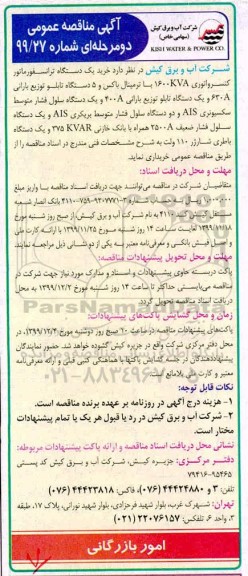 آگهی مناقصه عمومی
دومرحله‌ای شماره ۹۹/۲۷
شرکت آب و برق کیش
(سهامی خاص)
KISH WATER & POWER CO.
شرکت آب و برق کیش در نظر دارد خرید یک دستگاه ترانسفورماتور
کنسرواتوری ۱۶۰۰KVA با ترمینال باکس و ۵ دستگاه تابلو توزیع بارانی
۶۳۰A و یک دستگاه تابلو توزیع بارانی ۴۰۰A و یک دستگاه سلول فشار متوسط
سکسیونری AIS و دو دستگاه سلول فشار متوسط بریکری AIS و یک دستگاه
سلول فشار ضعیف ۲۵۰۰A همراه با بانک خازنی ۳۷۵ KVAR و یک دستگاه
باطری شارژر ۱۱۰ ولت به شرح مشخصات فنی مندرج در اسناد مناقصه را از
طریق مناقصه عمومی خریداری نماید.
مهلت و محل دریافت اسناد:
متقاضیان شرکت در مناقصه می‌توانند جهت دریافت اسناد مناقصه با واریز مبلغ
بنام شرکت آب و برق کیش از صبح روز شنبه مورخ
۱۳۹۹/۱۱/۱۸ لغایت ساعت ۱۴ روز شنبه مورخ ۱۳۹۹/۱۱/۲۵ با ارائه کارت ملی
و اصل فیش بانکی و معرفی‌نامه معتبر به یکی از دو نشانی ذیل مراجعه نمایند.
مهلت و محل تحویل پیشنهادات مناقصه:
پاکت دربسته حاوی پیشنهادات و اسناد و مدارک مورد نیاز جهت شرکت در
مناقصه می‌بایستی حداکثر تا ساعت ۱۴ روز شنبه مورخ ۱۳۹۹/۱۲/۲ به محل
دریافت اسناد مناقصه تحویل گردد.
زمان و محل گشایش پاکت‌های پیشنهادات:
پاکت‌های پیشنهادات مناقصه در ساعت ۱۰ صبح روز دوشنبه مورخ ۱۳۹۹/۱۲/۴ در
محل دفتر مرکزی شرکت واقع در جزیره کیش گشوده خواهد شد. حضور نمایندگان
پیشنهاددهندگان در جلسه گشایش پاکتها با هماهنگی کتبی قبلی و ارائه معرفی‌نامه
معتبر و کارت ملی بلامانع است.
نکات قابل توجه:
۱- هزینه درج آگهی در روزنامه بر عهده برنده مناقصه است.
۲- شرکت آب و برق کیش در رد یا قبول هر یک یا تمام پیشنهادات
مختار است.
نشانی محل دریافت اسناد مناقصه و ارائه پاکت پیشنهادات مربوطه:
دفتر مرکزی: جزیره کیش، شرکت آب و برق کیش کد پستی
۷۹۴۱۶-۹۵۴۶۵
تلفن: ۳ و ۴۴۴۲۴۸۸۰ (۰۷۶)، فاکس: ۴۴۴۲۳۸۱۸ (۰۷۶)
تهران: شهرک غرب، بلوار شهید فرحزادی، بلوار شهید نورانی، پلاک ۱۷، طبقه
۳، واحد ۶ تلفکس: ۲۲۰۷۶۱۵۷ (۰۲۱)
امور بازرگانی
ParsNamadData
۰۲۱-۸۸۳۴۹۶۷۰